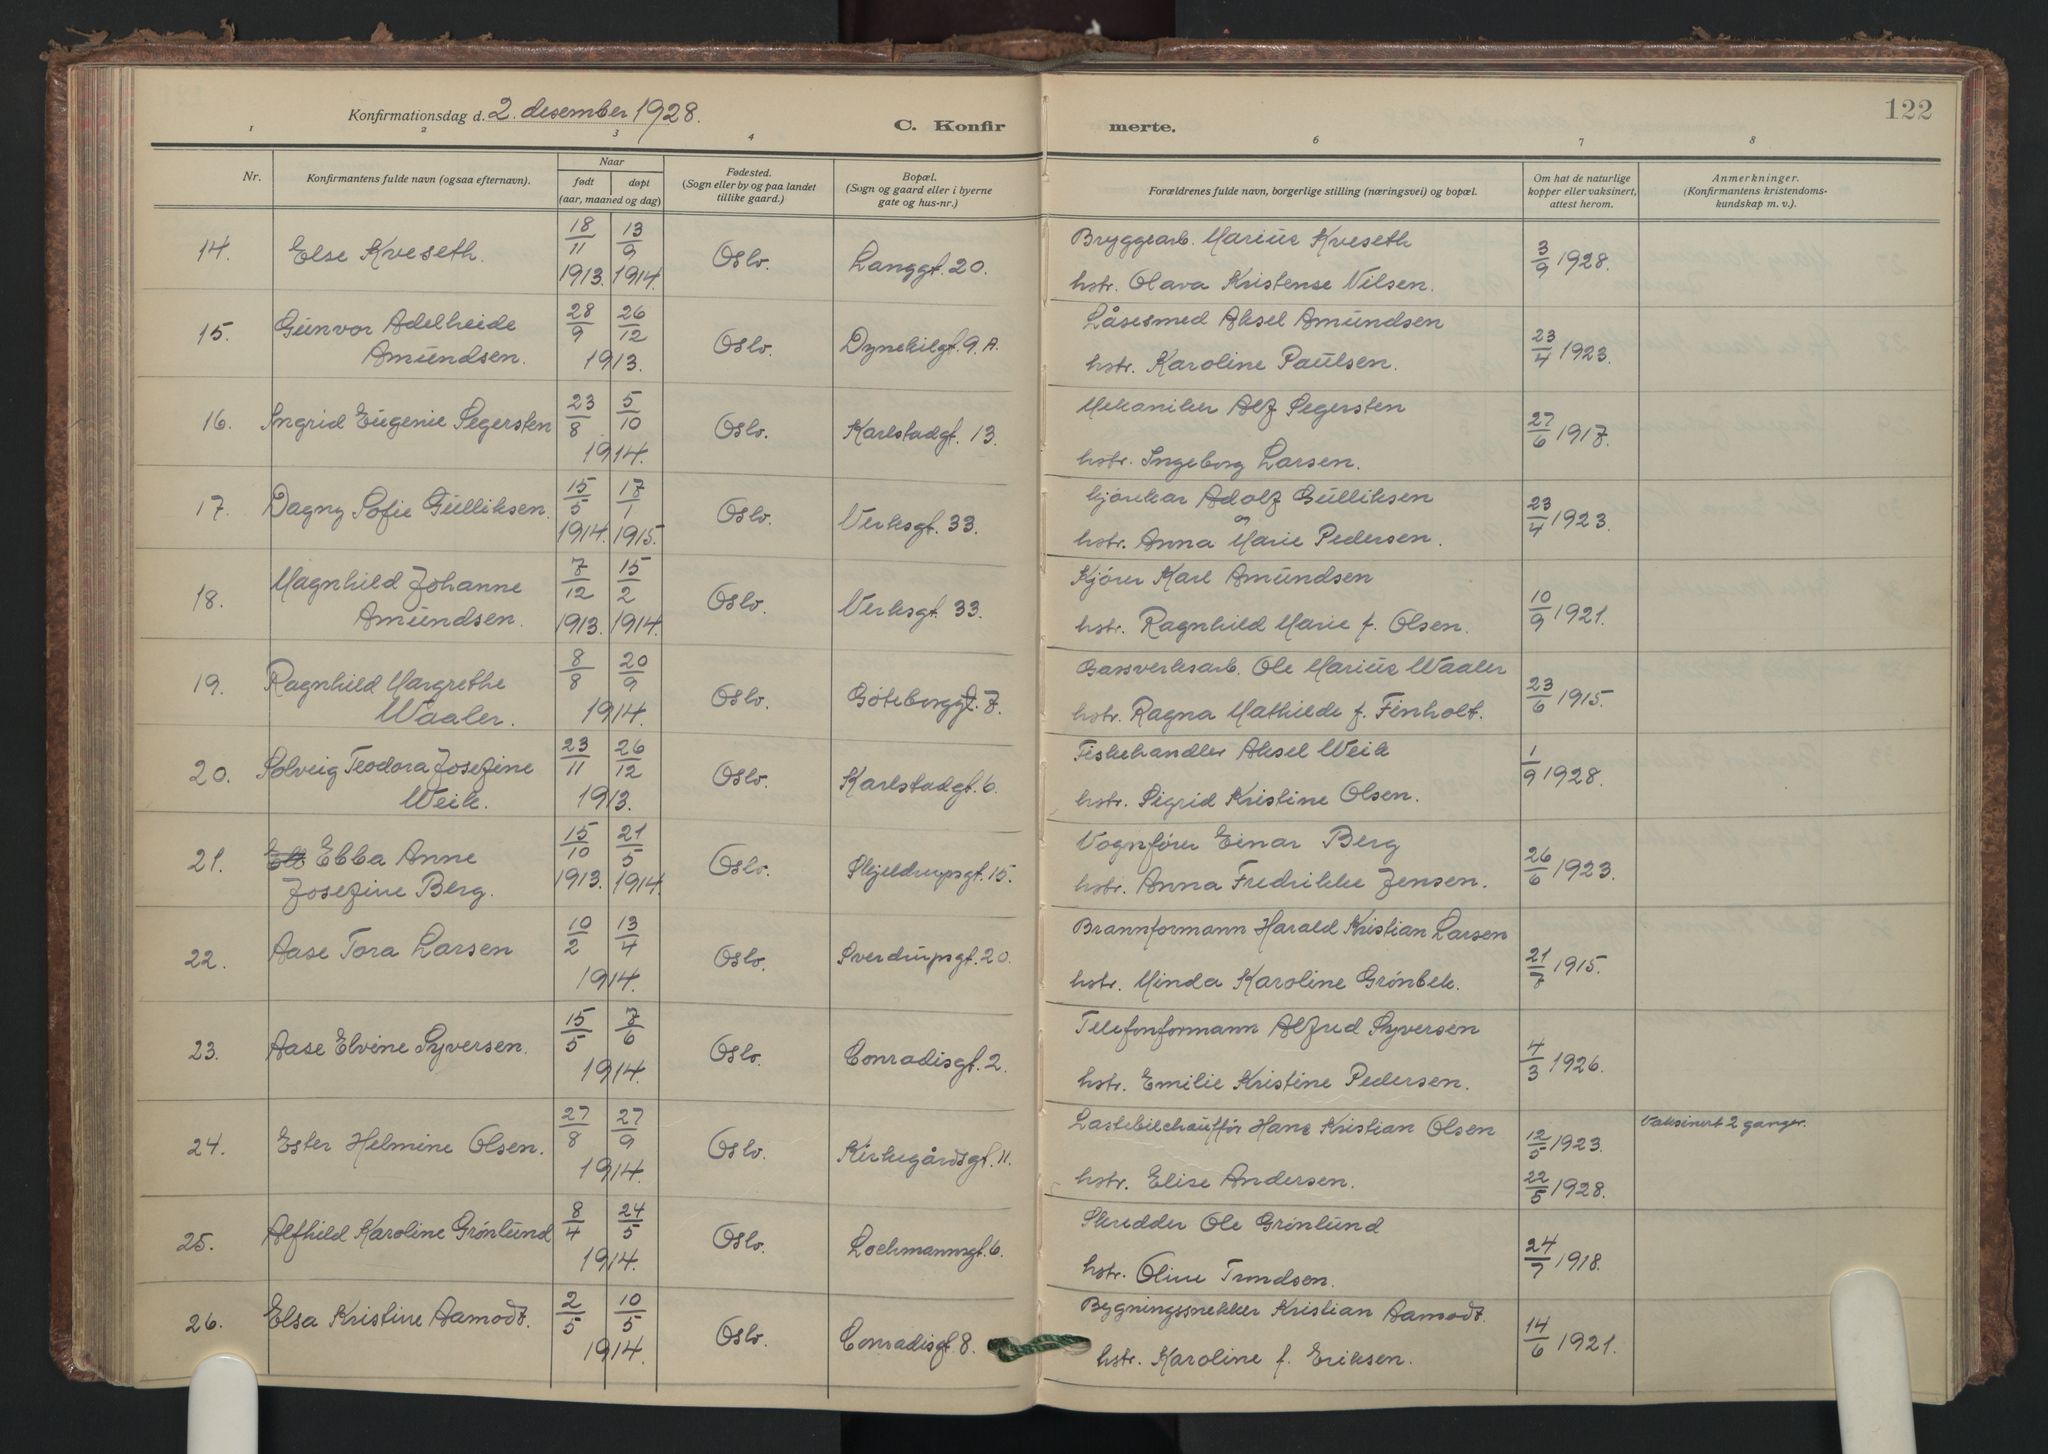 122
Konfirmationsdag d. 2. desember 1928.
C. Konfirmerte.
1 2 3 4 5 6 7 8
Nr. | Konfirmantens fulde navn (ogsaa efternavn). | Naar født | døpt (aar, maaned og dag) | Fødested. (Sogn eller by og paa landet tillike gaard.) | Bopæl. (Sogn og gaard eller i byerne gate og hus-nr.) | Forældrenes fulde navn, borgerlige stilling (næringsvei) og bopæl. | Om hat de naturlige kopper eller vaksinert, attest herom. | Anmerkninger. (Konfirmantens kristendomskundskap m. v.).
14. Else Kveseth. 18/11 1913. 13/9 1914 Oslo. Langgt. 20. Bryggearb. Marius Kveseth 3/9 1928.
hstr. Olava Kristense Nilsen.
15. Gunvor Adelheide 28/9 26/12 Oslo. Dynekilgt. 9 A. Låsesmed Aksel Amundsen 23/4 1923.
Amundsen. 1913. hstr. Karoline Paulsen.
16. Ingrid Eugenie Segersten 23/8 5/10 1914. Oslo. Karlstadgt. 13. Mekaniker Alf Segersten 27/6 1917.
hstr. Ingeborg Larsen.
17. Dagny Sofie Gulliksen. 15/5 1914. 17/1 1915. Oslo. Verksgt. 33. Kjørekar Adolf Gulliksen 23/4 1923.
hstr. Anna Marie Pedersen.
18. Magnhild Johanne 7/12 1913. 15/2 1914. Oslo. Verksgt. 33. Kjører Karl Amundsen 10/9 1921.
Amundsen. hstr. Ragnhild Marie f. Olsen.
19. Ragnhild Margrethe 8/8 20/9 1914. Oslo. Gøteborggt. 7. Gassverksarb. Ole Marius Waaler 23/6 1915.
Waaler. hstr. Ragna Mathilde f. Finholt.
20. Solveig Teodora Josefine 23/11 26/12 1913. Oslo. Karlstadgt. 6. Fiskehandler Aksel Weik 1/9 1928.
Weik. hstr. Sigrid Kristine Olsen.
21. Ebba Anne 15/10 1913. 21/5 1914. Oslo. Skjeldrupsgt. 15. Vognfører Einar Berg 26/6 1923.
Josefine Berg. hstr. Anna Fredrikke Jensen.
22. Aase Tora Larsen 10/2 13/4 1914. Oslo. Sverdrupsgt. 20. Brannformann Harald Kristian Larsen 21/7 1915.
hstr. Minda Karoline Grønbek.
23. Aase Elvine Syversen. 15/5 7/6 1914. Oslo. Conradisgt. 2. Telefonformann Alfred Syversen 4/3 1926.
hstr. Emilie Kristine Pedersen.
24. Ester Helmine Olsen. 27/8 27/9 1914. Oslo. Kirkegårdsgt. 11. Lastebilchauffør Hans Kristian Olsen 12/5 1923. Vaksinert 2 ganger.
hstr. Elise Andersen. 22/5 1928.
25. Alfhild Karoline Grønlund 8/4 24/5 1914. Oslo. Lochmannsgt. 6. Skredder Ole Grønlund 24/7 1918.
hstr. Oline Trondsen.
26. Elsa Kristine Aamodt. 2/5 10/5 1914. Oslo. Conradisgt. 8. Bygningssnekker Kristian Aamodt. 14/6 1921.
hstr. Karoline f. Eriksen.